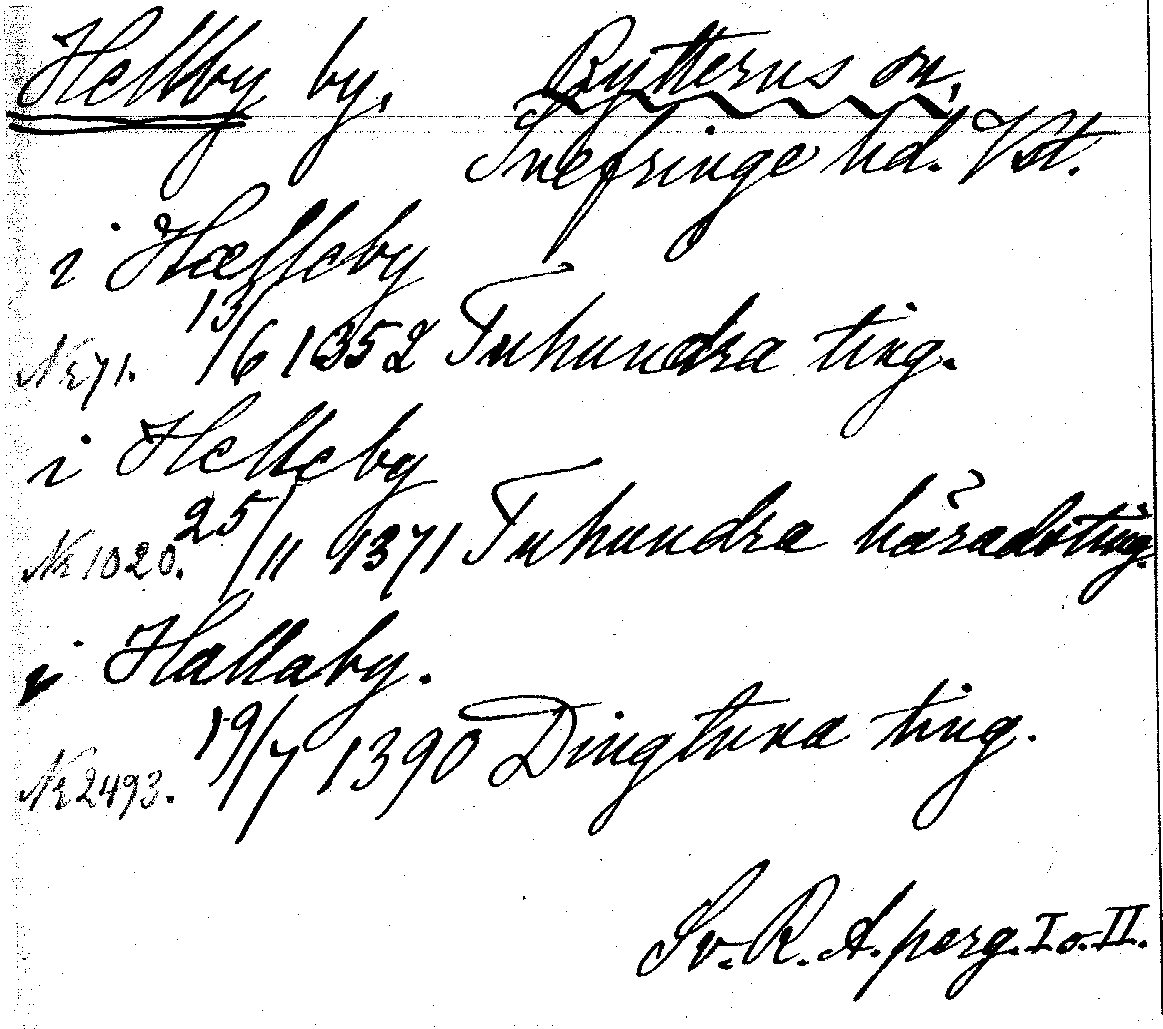 Hellby by. Rytterns sn,
Snefringe hd. Vst.
i Hælleby
Nr 71. 13/6 1352 Tuhundra ting.
i Helleby
Nr 1020. 25/11 1371 Tuhundra häradsting.
i Hallaby.
Nr 2493. 19/7 1390 Dingtuna ting.
Sv. R. A. perg. I o. II.